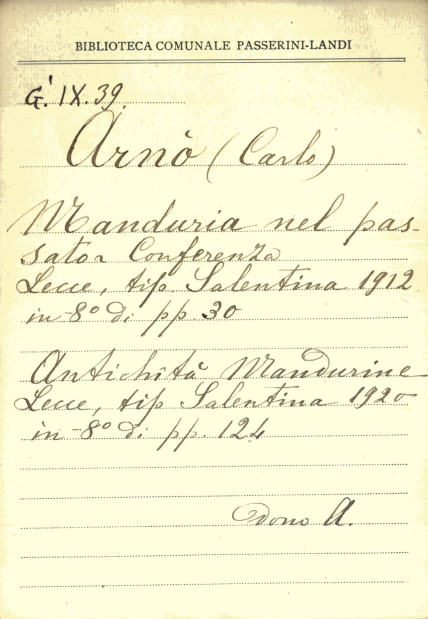 BIBLIOTECA COMUNALE PASSERINI-LANDI
G. IX. 39.
Arnò (Carlo)
Manduria nel pas-
sato. Conferenza
Lecce, tip. Salentina 1912
in-8° di pp. 30
Antichità Mandurine
Lecce, tip. Salentina 1920
in-8° di pp. 124
Dono A.